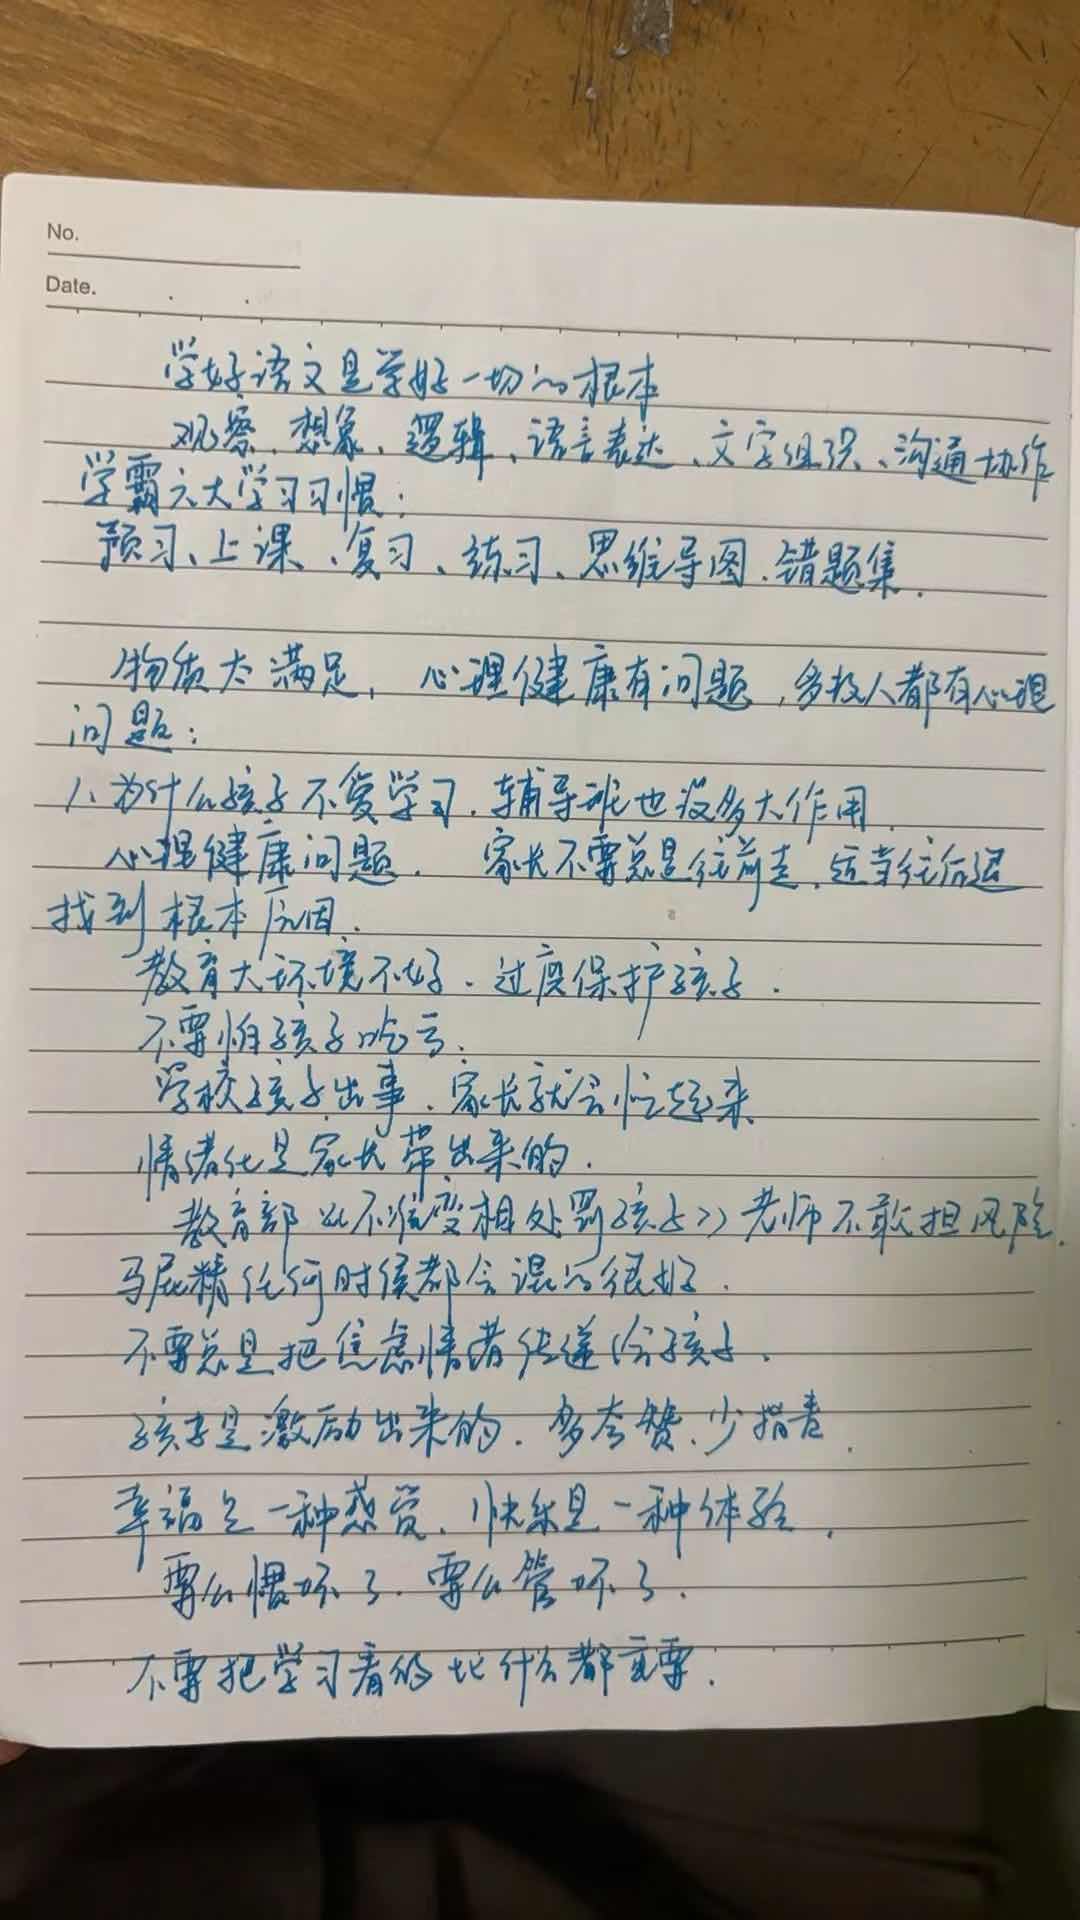 No.
Date.
学好语文是学好一切的根本
观察、想象、逻辑、语言表达、文字组织、沟通协作
学霸六大学习习惯:
预习、上课、复习、练习、思维导图、错题集.
物质太满足, 心理健康有问题, 多数人都有心理
问题:
1、为什么孩子不爱学习, 辅导班也没多大作用.
心理健康问题. 家长不要总是往前走, 适当往后退
找到根本原因.
教育大环境不好. 过度保护孩子.
不要怕孩子吃亏.
学校孩子出事, 家长就会忙起来
情绪化是家长带出来的.
教育部《不准变相处罚孩子》老师不敢担风险.
马屁精任何时候都会混的很好.
不要总是把焦虑情绪传递给孩子.
孩子是激励出来的. 多夸赞、少指责.
幸福是一种感觉, 快乐是一种体验.
要么惯坏了. 要么管坏了.
不要把学习看的比什么都重要.